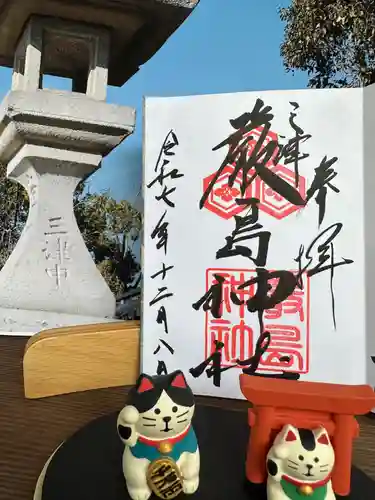 参拝
三津
厳島神社
嚴島
神社
令和七年十二月八日
三津中